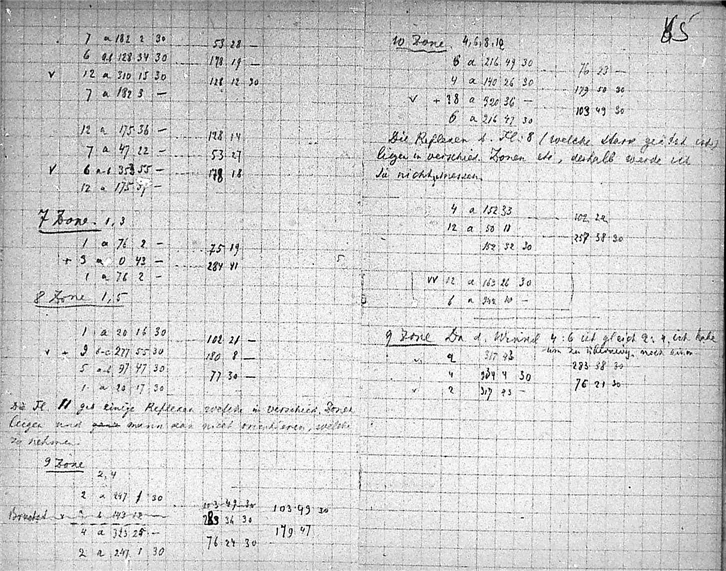 7 a 182 2 30
53 28 —
6 a.b 128 34 30
178 19 —
v 12 a 310 15 30
128 12 30
7 a 182 3 —
12 a 175 36 —
128 14
7 a 47 22 —
53 27
v 6 a.b 353 55 —
178 18
12 a 175 37 —
7 Zone 1, 3
1 a 76 2 —
75 19
+ 3 a 0 43 —
284 41
1 a 76 2 —
8 Zone 1, 5
1 a 20 16 30
102 21 —
v + 9 b-c 277 55 30
180 8 —
5 a.b 97 47 30
77 30 —
1 a 20 17 30
Die Fl. 11 gab einige Reflexen welche in verschied. Zonen
liegen und man kan nicht orientieren, welche
zu nehmen.
9 Zone
2, 4
2 a 247 1 30
103 49 30 103 49 30
b 143 12 —
283 36 30
179 47
4 a 323 25 —
76 24 30
2 a 247 1 30
65
10 Zone 4, 6, 8, 12
6 a 216 49 30
76 23 —
4 a 140 26 30
179 50 30
v + 38 a 320 36 —
103 49 30
6 a 216 47 30
Die Reflexen d. Fl. 8 (welche stark geätzt ist)
liegen in verschied. Zonen etc, deshalb werde ich
sie nicht messen.
4 a 152 33
102 22
12 a 50 11
257 38 30
152 32 30
vv 12 a 163 26 30
6 a
9 Zone Da d. Winkel 4 : 6 ist gleich 2 : 4, ich habe
um zu noch einen
2 317 43
283 38 30
4 4 30
76 21 30
v 2 317 43 —